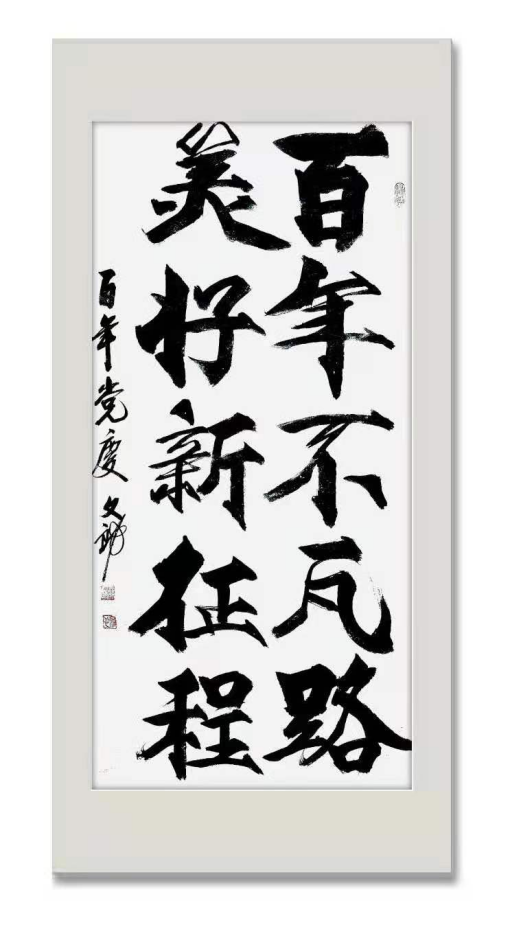 百年不凡路
美好新征程
百年党庆 文